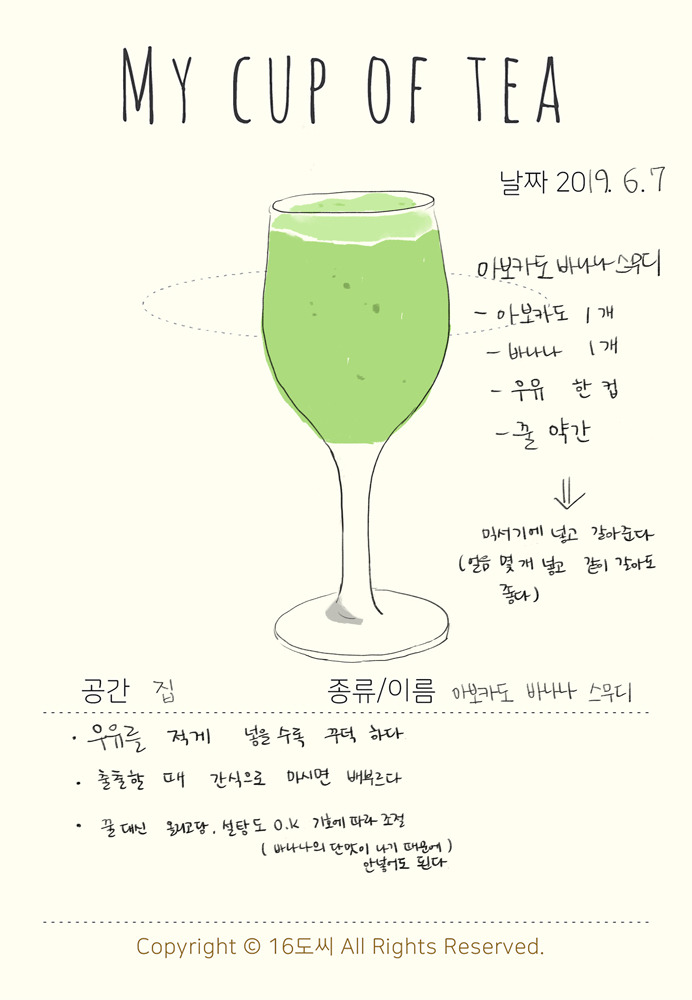 MY CUP OF TEA
날짜 2019. 6.7
아보카도 바나나 스무디
- 아보카도 1개
- 바나나 1개
- 우유 한 컵
- 꿀 약간
믹서기에 넣고 갈아준다
(얼음 몇 개 넣고 같이 갈아도
좋다)
공간 집
종류/이름 아보카도 바나나 스무디
· 우유를 적게 넣을수록 꾸덕 하다
· 출출할 때 간식으로 마시면 배부르다
· 꿀 대신 올리고당, 설탕도 O.K 기호에 따라 조절
(바나나의 단맛이 나기 때문에)
안넣어도 된다
Copyright © 16도씨 All Rights Reserved.